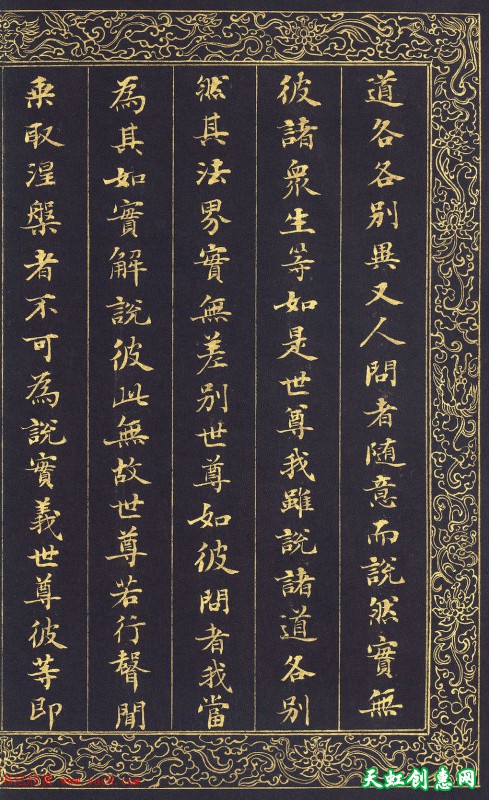 道各各別異又人問者随意而說然實無
彼諸衆生等如是世尊我雖說諸道各別
然其法界實無差別世尊如彼問者我當
為其如實解說彼此無故世尊若行聲聞
乘取涅槃者不可為說實義世尊彼等即
天虹创意网